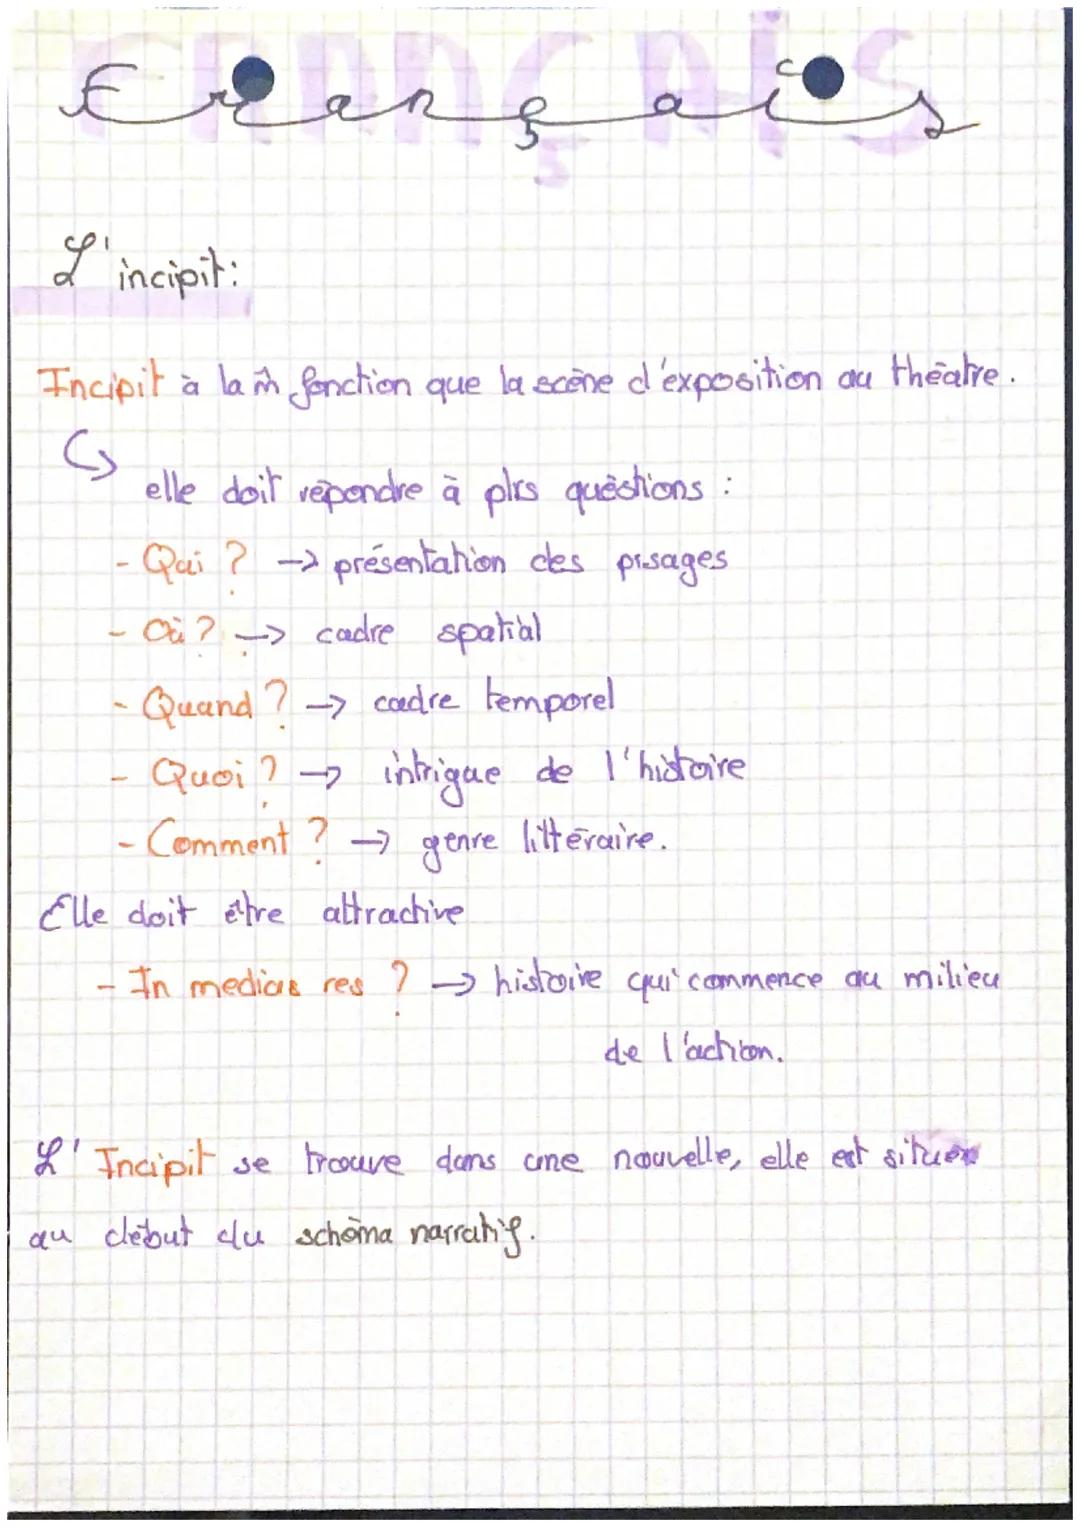 FRANÇAIS
Français
L'incipit:
Incipit à la m̂ fonction que la scène d'exposition au théâtre.
↪ elle doit répondre à plrs quèstions :
- Qui ? → présentation des prsages
- Où ? → cadre spatial
- Quand ? → cadre temporel
- Quoi ? → intrigue de l'histoire
- Comment ? → genre littéraire.
Elle doit être attractive
- In medias res ? → histoire qui commence au milieu
de l'action.
L'Incipit se trouve dans une nouvelle, elle est située
au début du schèma narratif.